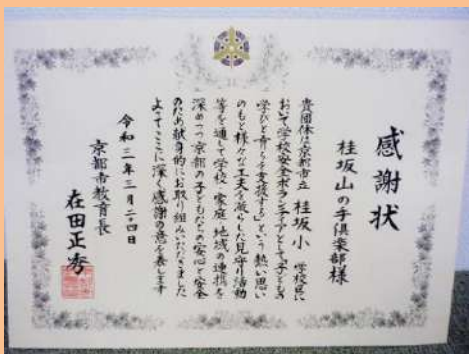 感謝状
桂坂山の手倶楽部様
貴団体は京都市立 桂坂小 学校区に
おいて学校安全ボランティアとして「子どもの
学びと育ちを支援する」という熱い思い
のもと様々な工夫を凝らした見守り活動
等を通して学校・家庭・地域の連携を
深めつつ京都の子どもたちの安心と安全
のため献身的にお取り組みいただきました
よってここに深く感謝の意を表します
令和三年三月二十四日
京都市教育長
在田正秀